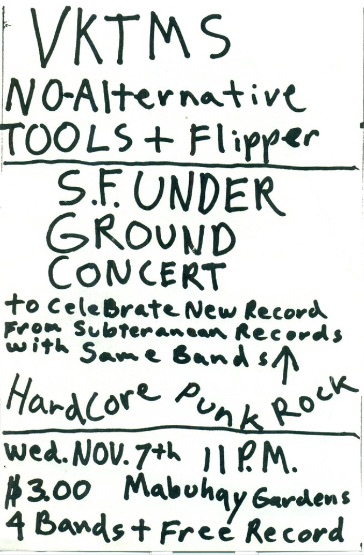 VKTMS
NO-Alternative
TOOLS + Flipper
S.F. UNDER
GROUND
CONCERT
to CeleBrate New Record
From Subteranean Records
with Same Bands ↑
HardCore Punk Rock
Wed. NOV. 7th 11 P.M.
$3.00 Mabuhay Gardens
4 Bands + Free Record